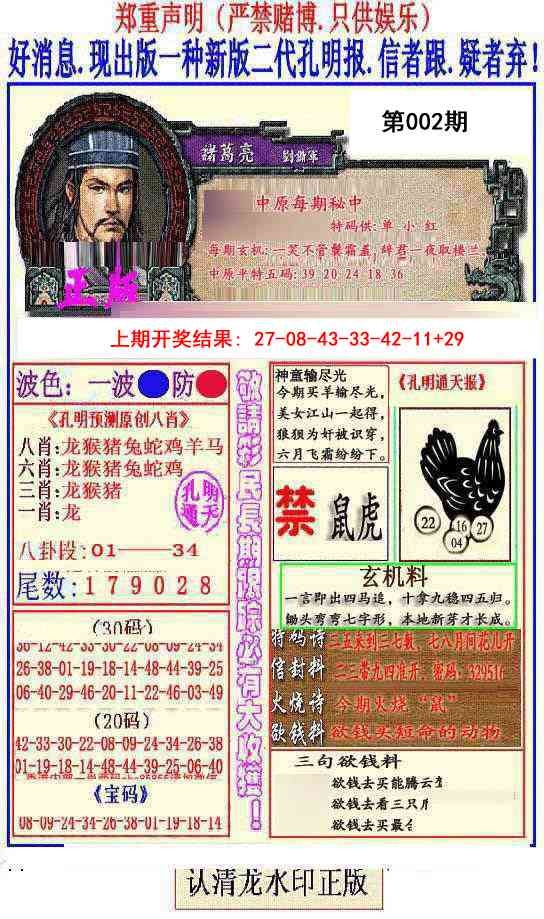 郑重声明（严禁赌博.只供娱乐）
好消息.现出版一种新版二代孔明报.信者跟.疑者弃!
第002期
諸葛亮
中原每期秘中
特码供:单 小 红
每期玄机:一笑不管鬢霜盖,辞君一夜取楼兰
中原平特五码:39 20 24 18 36
正版
上期开奖结果: 27-08-43-33-42-11+29
波色: 一波 防
《孔明预测原创八肖》
八肖:龙猴猪兔蛇鸡羊马
六肖:龙猴猪兔蛇鸡
三肖:龙猴猪
一肖:龙
孔明
通天
八卦段:01——34
尾数:179028
(30码)
38-12-42-33-30-22-08-09-24-34
26-38-01-19-18-14-48-44-39-25
06-40-29-46-20-11-22-46-03-49
(20码)
42-33-30-22-08-09-24-34-26-38
01-19-18-14-48-44-39-25-06-40
《宝码》
08-09-24-34-26-38-01-19-18-14
敬請彩民長期跟踪必有大收獲！
神童输尽光
今期买羊输尽光,
美女江山一起得,
狼狈为奸被识穿,
六月飞霜纷纷下。
《孔明通天报》
禁
鼠虎
22
16
27
04
玄机料
一言即出四马追，十拿九稳四五归。
锄头弯弯七字形，本地新芽才长成。
特码诗
三五未到三七数，七八月同花儿开
信封料
二三带九四准开，密码：329516
火烧诗
今期火烧“鼠”
欲钱料
欲钱买短命的动物
三句欲钱料
欲钱去买能腾云
欲钱去看三只
欲钱去买最
认清龙水印正版